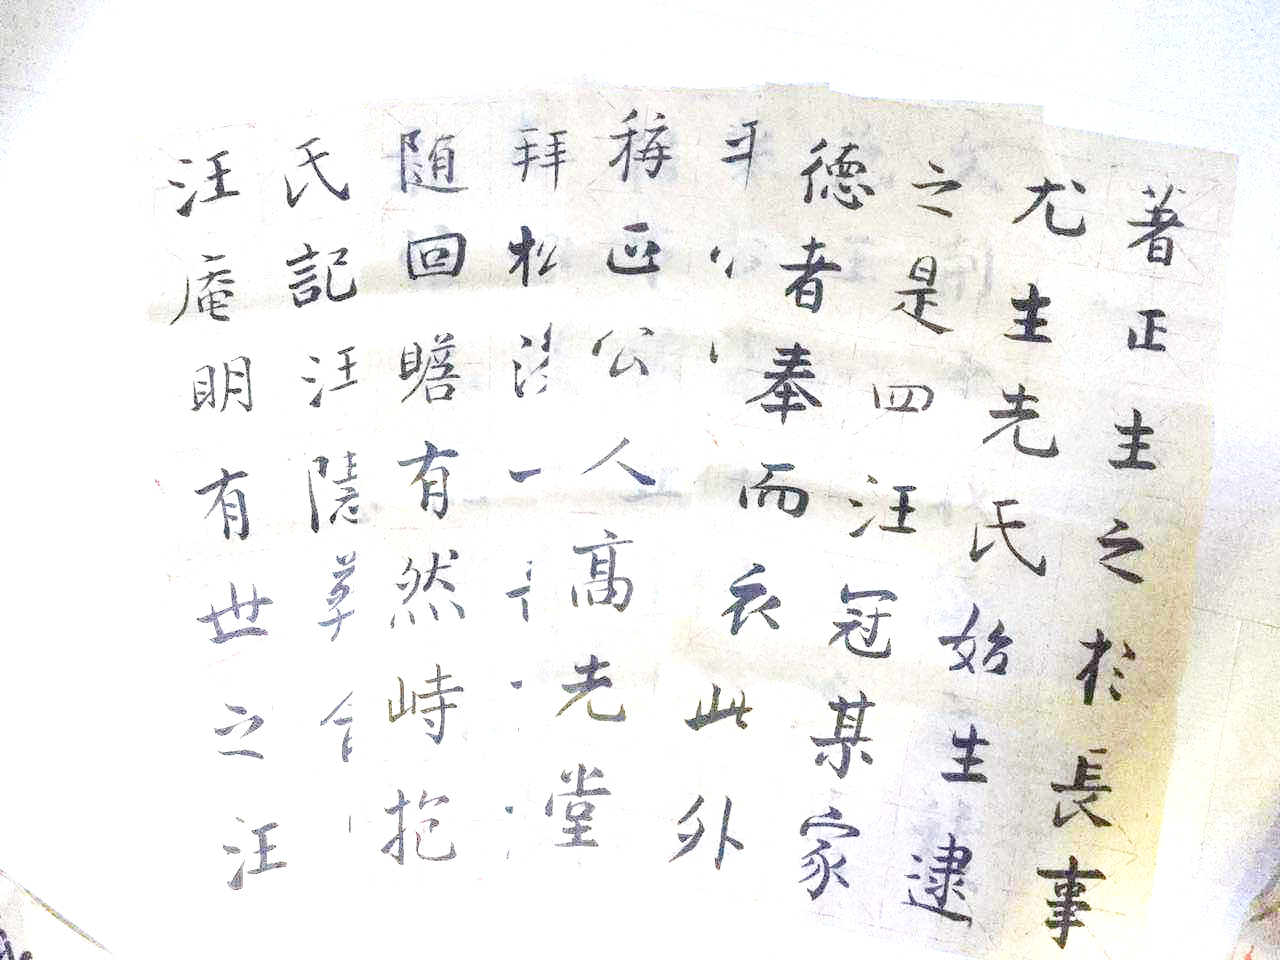 著正主之於長事
尤主先氏始生逮
之是四汪冠某家
德者奉而衣此外
稱匹公人高先堂
拜松一
隨回瞻有然峙抱
氏記汪隱草
汪庵明有世之汪